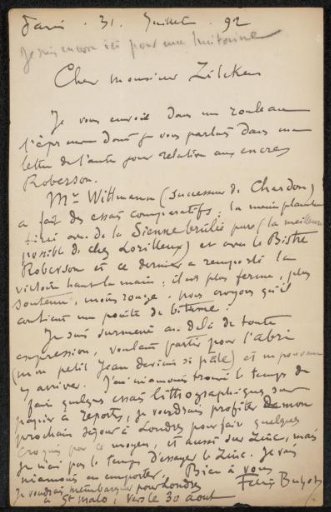 Paris . 31 . Juillet . 92
Je suis encore ici pour une huitaine
Cher Monsieur Zilcken
Je vous envoie dans un rouleau
l'épreuve dont je vous parlais dans ma
lettre de l'autre jour relation aux encres
Roberson.
Mr Wittmann (successeur de Chardon)
a fait des essais comparatifs, la même planche
tirée av. de la Sienne brûlée pure (la meilleure
possible de chez Lorilleux) et avec le Bistre
Roberson et ce dernier a remporté la
victoire haut la main ; il est plus ferme, plus
soutenu, moins rouge. nous croyons qu'il
contient une pointe de bitume.
Je suis surmené au delà de toute
expression, voulant partir pour l'abri
(mon petit Jean devient si pâle) et ne pouvant
y arriver. J'ai néanmoins trouvé le temps de
faire quelques essais lithographiques sur
papier à reporter, je voudrais profiter de mon
prochain séjour à Londres pour faire quelques
croquis par ce moyen, et aussi sur zinc, mais
je n'ai pas le temps d'essayer le zinc. Je vais
néanmoins en emporter. Bien à vous
Je voudrais m'embarquer pour Londres
à St malo, vers le 30 août
Félix Buhot